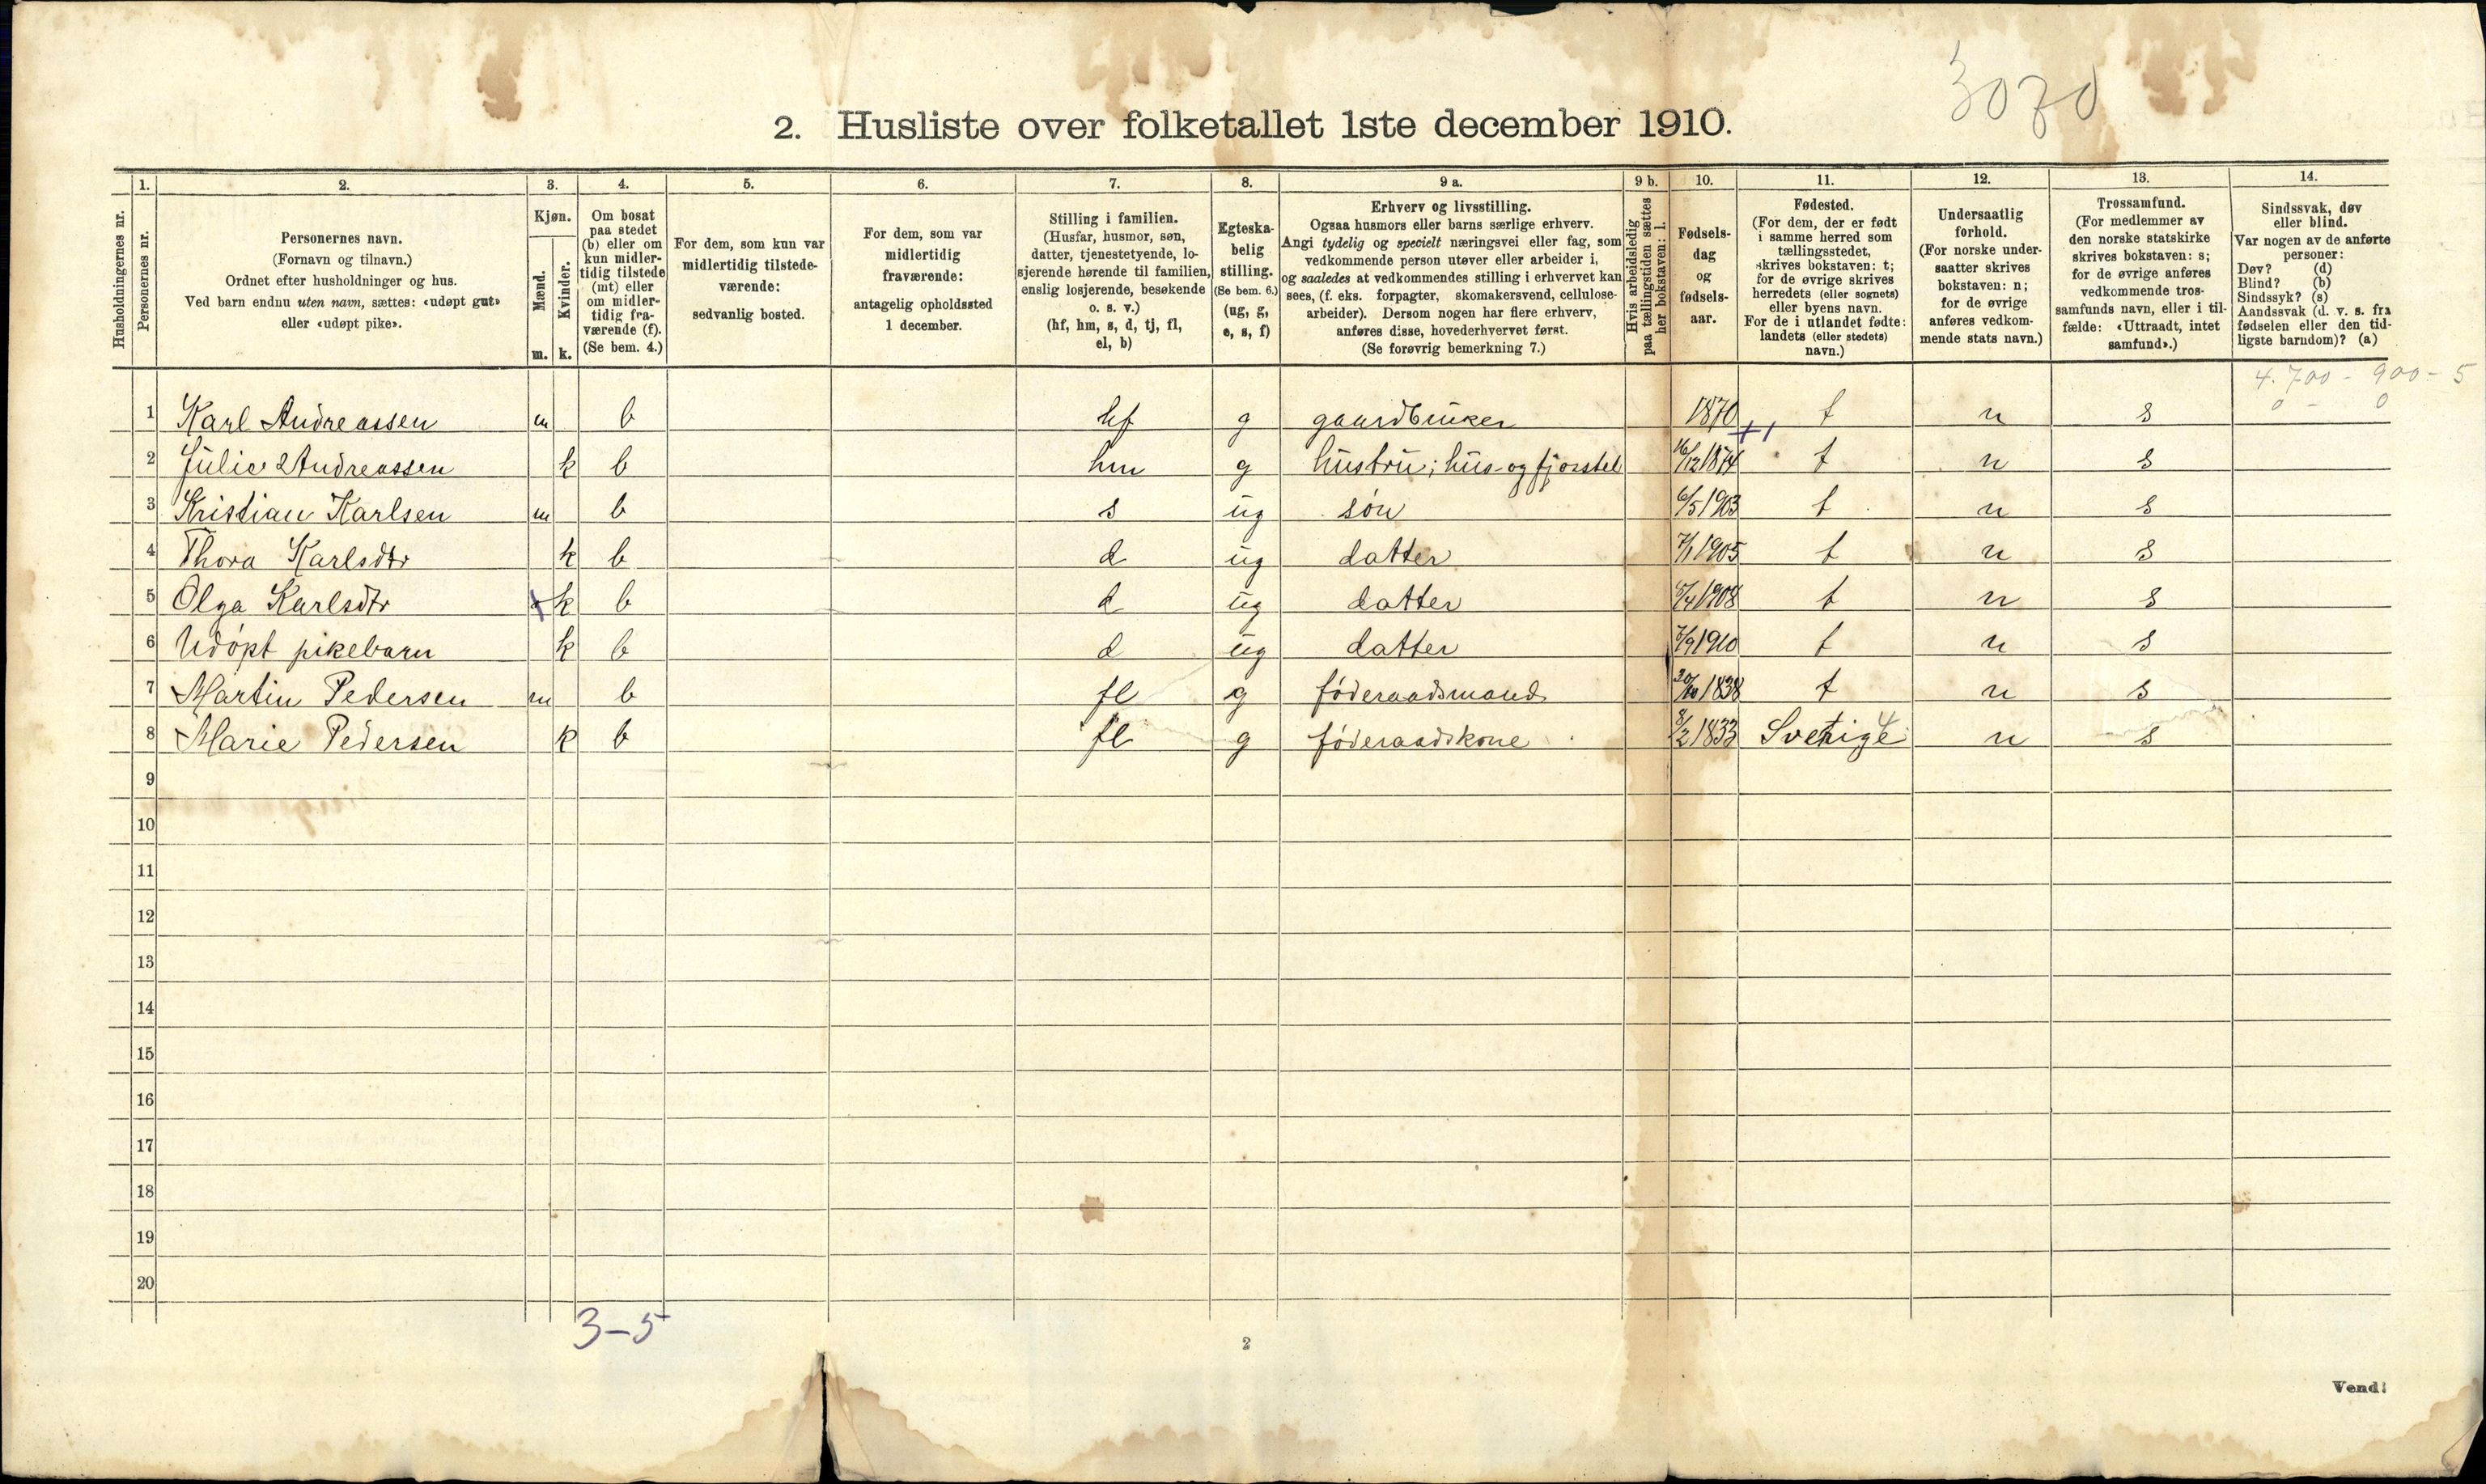 3070
2. Husliste over folketallet 1ste december 1910.
Husholdningernes nr.
1.
Personernes nr.
2.
Personernes navn.
(Fornavn og tilnavn.)
Ordnet efter husholdninger og hus.
Ved barn endnu uten navn, sættes: «udøpt gut»
eller «udøpt pike».
3.
Kjøn.
Mænd.
m.
Kvinder.
k.
4.
Om bosat
paa stedet
(b) eller om
kun midler-
tidig tilstede
(mt) eller
om midler-
tidig fra-
værende (f).
(Se bem. 4.)
5.
For dem, som kun var
midlertidig tilstede-
værende:
sedvanlig bosted.
6.
For dem, som var
midlertidig
fraværende:
antagelig opholdssted
1 december.
7.
Stilling i familien.
(Husfar, husmor, søn,
datter, tjenestetyende, lo-
sjerende hørende til familien,
enslig losjerende, besøkende
o. s. v.)
(hf, hm, s, d, tj, fl,
el, b)
8.
Egteska-
belig
stilling.
(Se bem. 6.)
(ug, g,
e, s, f)
9 a.
Erhverv og livsstilling.
Ogsaa husmors eller barns særlige erhverv.
Angi tydelig og specielt næringsvei eller fag, som
vedkommende person utøver eller arbeider i,
og saaledes at vedkommendes stilling i erhvervet kan
sees, (f. eks. forpagter, skomakersvend, cellulose-
arbeider). Dersom nogen har flere erhverv,
anføres disse, hovederhvervet først.
(Se forøvrig bemerkning 7.)
9 b.
Hvis arbeidsledig
paa tællingstiden sættes
her bokstaven: l.
10.
Fødsels-
dag
og
fødsels-
aar.
11.
Fødested.
(For dem, der er født
i samme herred som
tællingsstedet,
skrives bokstaven: t;
for de øvrige skrives
herredets (eller sognets)
eller byens navn.
For de i utlandet fødte:
landets (eller stedets)
navn.)
12.
Undersaatlig
forhold.
(For norske under-
saatter skrives
bokstaven: n;
for de øvrige
anføres vedkom-
mende stats navn.)
13.
Trossamfund.
(For medlemmer av
den norske statskirke
skrives bokstaven: s;
for de øvrige anføres
vedkommende tros-
samfunds navn, eller i til-
fælde: «Uttraadt, intet
samfund».)
14.
Sindssvak, døv
eller blind.
Var nogen av de anførte
personer:
Døv? (d)
Blind? (b)
Sindssyk? (s)
Aandssvak (d. v. s. fra
fødselen eller den tid-
ligste barndom)? (a)
4.700 - 900 - 5
0 - 0
1 Karl Andreassen m b hf g gaardbruker 1870 t n s
2 Julie Andreassen k b hm g hustru; hus- og fjosstel 16/12 1874 t n s
3 Kristian Karlsen m b s ug søn 6/5 1903 t n s
4 Thora Karlsdtr k b d ug datter 7/1 1905 t n s
5 Olga Karlsdtr k b d ug datter 1908 t n s
6 Udøpt pikebarn k b d ug datter 1910 t n s
7 Martin Pedersen m b fl g føderaadsmand 1838 t n s
8 Marie Pedersen k b fl g føderaadskone 8/2 1833 Sverige 4 n s
9
10
11
12
13
14
15
16
17
18
19
20
3-5
2
Vend!